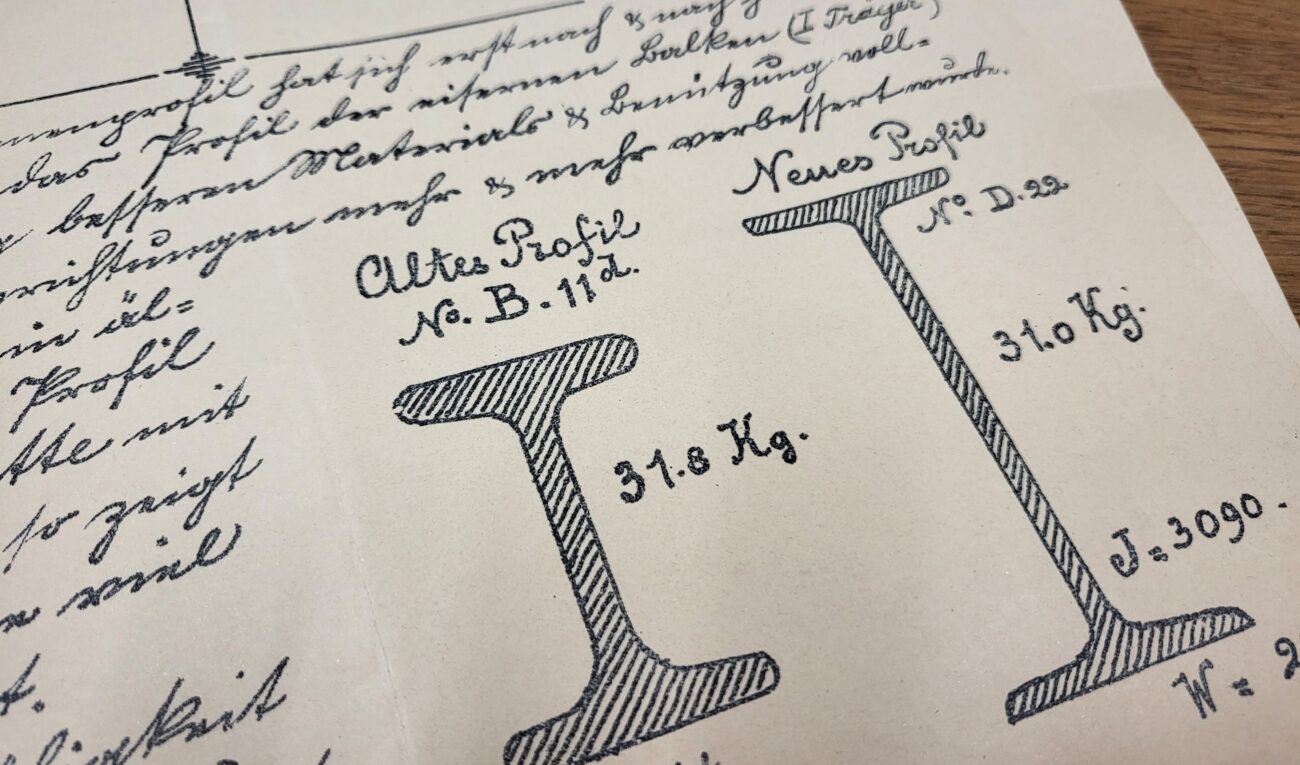 nenprofil hat sich erst nach & nach
das Profil der eisernen Balken (I Träger)
besseren Materials & Benützung voll=
richtungen mehr & mehr verbessert wurde.
in äl=
Profil
tte mit
so zeigt
viel
t.
igkeit
Altes Profil
No. B. 11d.
31.8 Kg.
Neues Profil
No. D. 22
31.0 Kg.
J = 3090.
W = 2